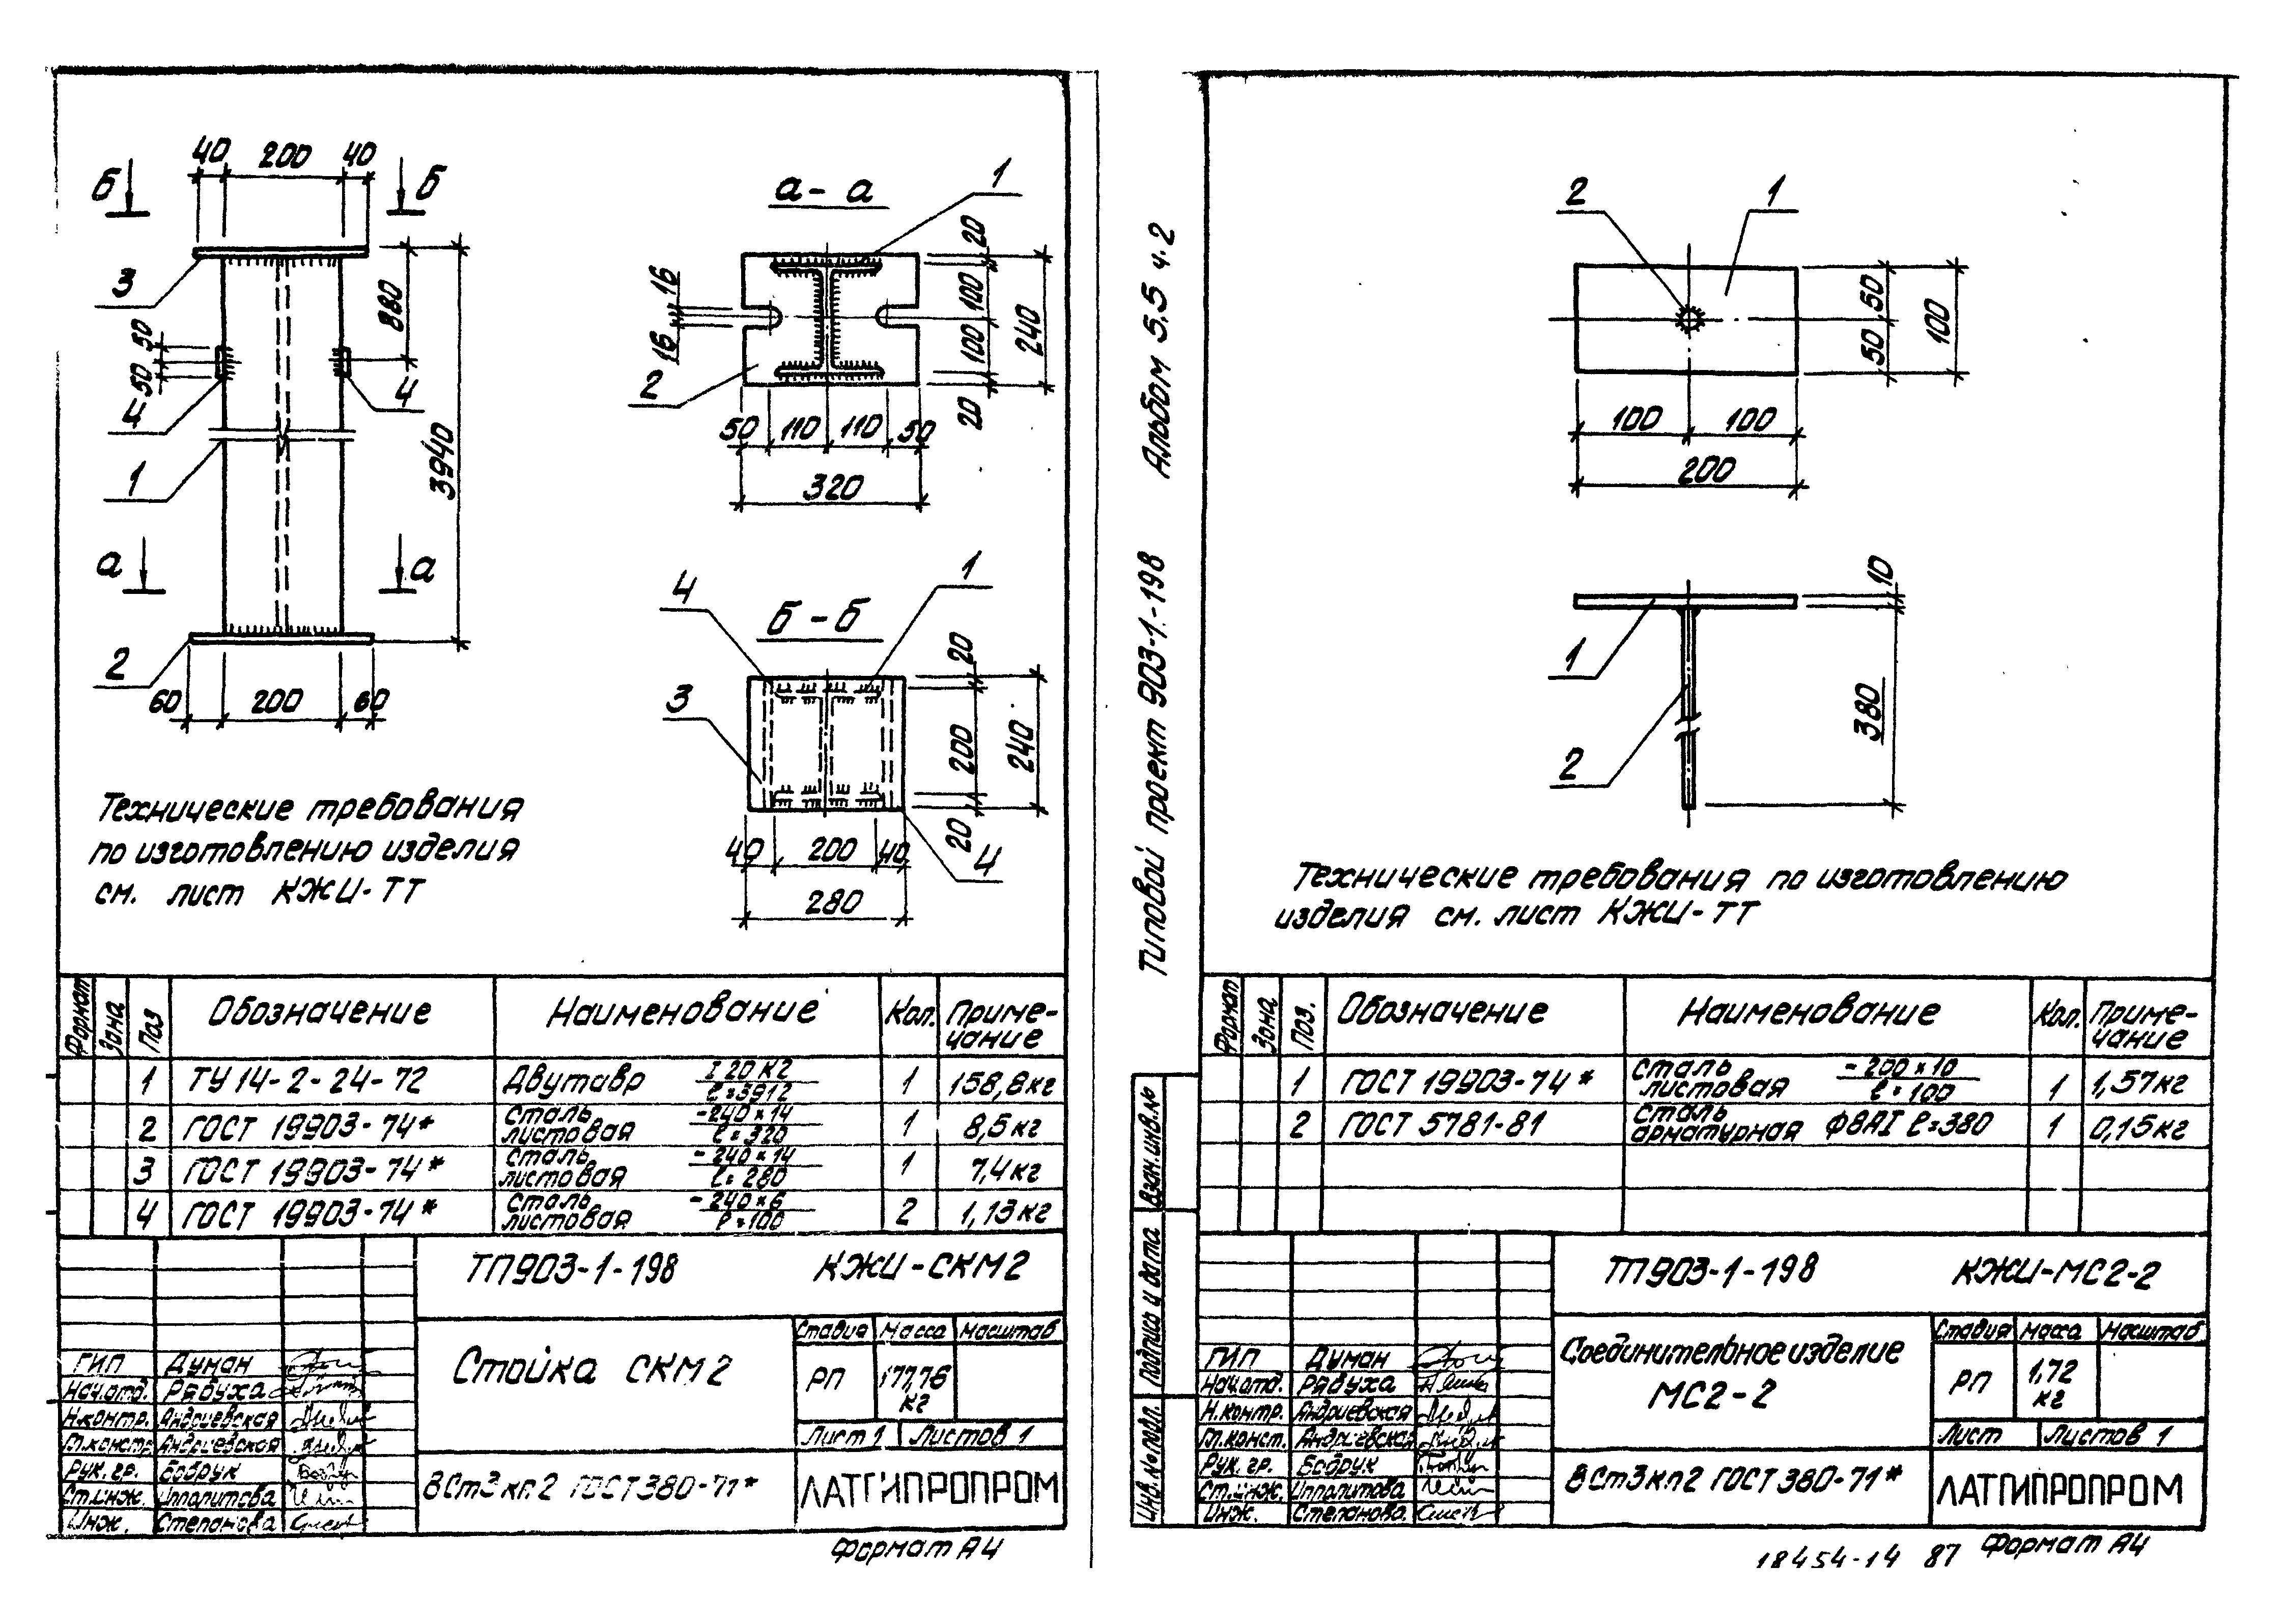 40 200 40
Б Б
3
880
50
50
4 4
3940
1
а а
2
60 200 60
а - а
1
20
16
100
240
16
100
2
20
50 110 110 50
320
4
1
Б - Б
20
3
200
240
20
40 200 40
4
280
Технические требования
по изготовлению изделия
см. лист КЖИ-ТТ
Формат Зона Поз Обозначение Наименование Кол. Приме-
чание
1 ТУ 14-2-24-72 Двутавр I 20 К2 l=3912 1 158,8кг
2 ГОСТ 19903-74* Сталь листовая -240×14 l=320 1 8,5кг
3 ГОСТ 19903-74* Сталь листовая -240×14 l=280 1 7,4кг
4 ГОСТ 19903-74* Сталь листовая -240×6 l=100 2 1,13кг
ТП903-1-198 КЖИ-СКМ2
Стойка СКМ2
Стадия Масса Масштаб
РП 177,76
кг
Лист 1 Листов 1
ГИП Думан
Нач.отд. Рябуха
Н.контр. Андриевская
Гл.констр. Андриевская
Рук. гр. Бобрук
Ст.инж. Ипполитова
Инж. Степанова
ВСт3кп2 ГОСТ380-71*
ЛАТГИПРОПРОМ
Формат А4
Типовой проект 903-1-198 Альбом 5,5 ч.2
Взам.инв.№
Подпись и дата
Инв.№подл.
2 1
50
50
100
100 100
200
10
1
380
2
Технические требования по изготовлению
изделия см. лист КЖИ-ТТ
Формат Зона Поз. Обозначение Наименование Кол. Приме-
чание
1 ГОСТ 19903-74* Сталь листовая -200×10 l=100 1 1,57кг
2 ГОСТ 5781-81 Сталь арматурная Ф8АI l=380 1 0,15кг
ТП903-1-198 КЖИ-МС2-2
Соединительное изделие
МС2-2
Стадия Масса Масштаб
РП 1,72
кг
Лист Листов 1
ГИП Думан
Нач.отд. Рябуха
Н.контр. Андриевская
Гл.конст. Андриевская
Рук. гр. Бобрук
Ст.инж. Ипполитова
Инж. Степанова
ВСт3кп2 ГОСТ380-71*
ЛАТГИПРОПРОМ
18454-14 87 Формат А4